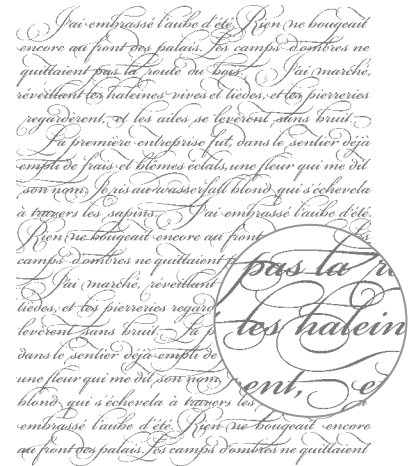 J'ai embrassé l'aube d'été. Rien ne bougeait
encore au front des palais. Les camps d'ombres ne
quittaient pas la route du bois. J'ai marché,
réveillant les haleines vives et tièdes, et les pierreries
regardèrent, et les ailes se levèrent sans bruit.
La première entreprise fut, dans le sentier déjà
empli de frais et blêmes éclats, une fleur qui me dit
son nom. Je ris au wasserfall blond qui s'échevela
à travers les sapins. J'ai embrassé l'aube d'été.
Rien ne bougeait encore au front Les
camps d'ombres ne quittaient
J'ai marché, réveillant
tièdes, et les pierreries regard
levèrent sans bruit. La
dans le sentier déjà empli de
une fleur qui me dit son nom.
blond, qui s'échevela à travers les
embrassé l'aube d'été. Rien ne bougeait encore
au front des palais. Les camps d'ombres ne quittaient
pas la r
les halein
ent, et